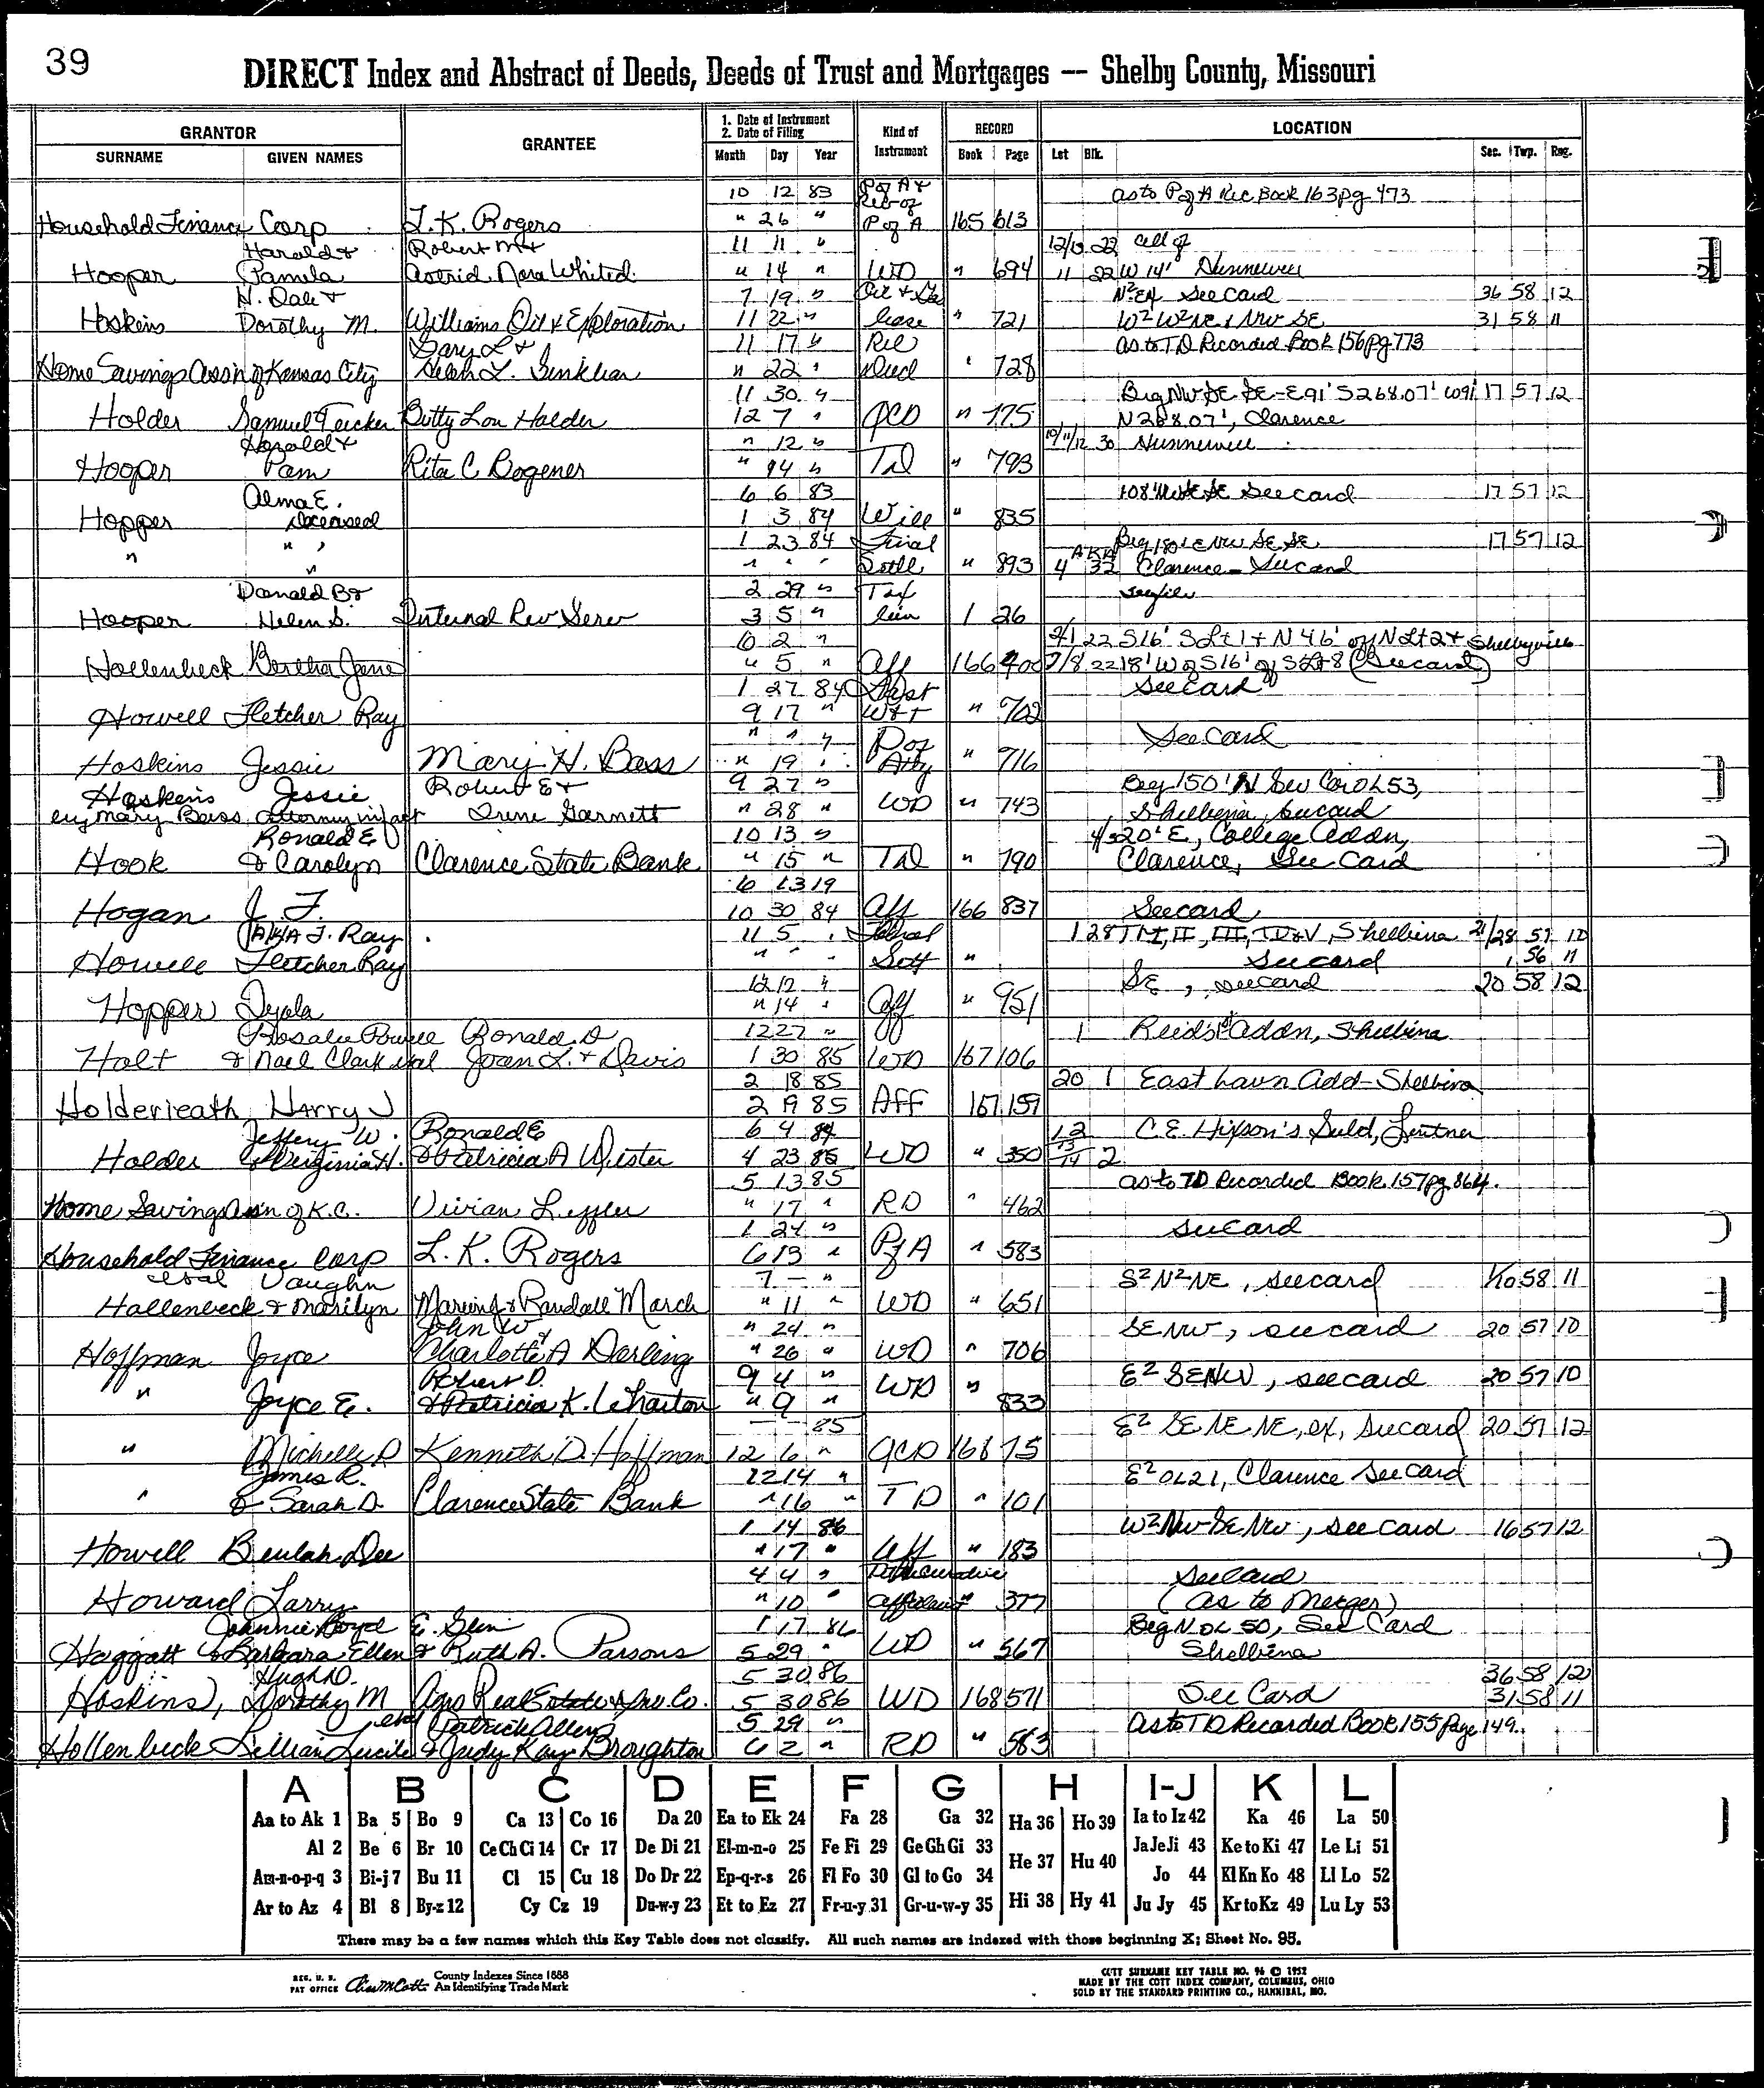 39
DIRECT Index and Abstract of Deeds, Deeds of Trust and Mortgages -- Shelby County, Missouri
GRANTOR GRANTEE 1. Date of Instrument 2. Date of Filing Kind of Instrument RECORD LOCATION
SURNAME GIVEN NAMES Month Day Year Book Page Lot Blk. Sec. Twp. Rng.
10 12 83 P of A + as to P of A Rec Book 163 pg 473
Household Finance Corp L. K. Rogers " 26 " P of A 165 613
Harold + Robert M + 11 11 " 22 all of
Hooper Pamela Astrid Nora Whited " 14 " WD " 694 11 22 W 14' Hunnewell
H. Dale + 7 19 " Oil + Gas N² E4 See Card 36 58 12
Hoskins Dorothy M. Williams Oil & Exploration 11 22 " lease " 721 W² W² NE + NW SE 31 58 11
Gary L + 11 17 " Rel as to TD Recorded Book 156 pg 773
Home Savings Ass'n of Kansas City L. " 22 " Deed " 728
11 30 " Beg NW SE SE-E 91' S 268.07' W 91' 17 57 12
Holder Samuel Tucker Betty Lou Holder 12 7 " QCD " 775 N 268.07', Clarence
Harold + " 12 " 10/11/12 30 Hunnewell
Hooper Pam Rita C Bogener " 14 " TD " 793
Alma E. 6 6 83 See card 17 57 12
Hopper Deceased 1 3 84 Will " 835
" " 1 23 84 Final Beg 180' E NW SE SE 17 57 12
" " " " Settl " 893 4 AKA 32 Clarence - See card
Donald B + 2 29 " Tax
Hooper Helen S. Internal Rev Serv 3 5 " lien 1 26
6 2 " 2/1 22 S 16' S Lt 1 + N 46' of N Lt 2 + Shelbyville
Hollenbeck Bertha Jane " 5 " Aff 166 400 7/8 22 18' W of S 16' of S Lt 8 (See card)
1 27 84 Last See card
Howell Fletcher Ray 9 17 " W&T " 702
" " " P of See Card
Hoskins Jessie Mary H. Bass " 19 " Atty " 716
Hoskins Jessie Robert E + 9 27 " Beg 150' N SW Cor OL 53,
by Mary Bass attorney in fact Irene Garnett " 28 " WD " 743 Shelbina, see card
Ronald E 10 13 " 4/5 20' E, College Addn,
Hook & Carolyn Clarence State Bank " 15 " TD " 790 Clarence, See Card
6 13 19
Hogan J. F. 10 30 84 Aff 166 837 See card
(AKA F. Ray 11 5 " Final 1 28 Shelbina 21/28 57 10
Howell Fletcher Ray " " " Sett " See card 1 56 11
12 12 " SE, see card 20 58 12
Hopper Zyola " 14 " Aff " 951
Rosalie Powell Ronald D 12 27 " 1 Reid's Addn, Shelbina
Holt & Nael Clark et al Joan L. + Davis 1 30 85 WD 167 106
2 18 85 20 1 East haven Add - Shelbina
Holderieath, Harry J 2 19 85 Aff 167 159
Jeffery W. Ronald E 6 4 84 12 C.E. Hixson's Subd, Lentner
Holder & Virginia H. & Patricia A Wister 4 23 85 WD " 350 13/14 2
5 13 85 as to TD Recorded Book 157 pg 864.
Home Savings Assn of K.C. Vivian Leffler " 17 " RD " 462
1 24 " See card
Household Finance Corp L. K. Rogers 6 13 " P of A " 583
et al Vaughn 7 - " S² N² NE, see card 10 58 11
Hollenbeck & Marilyn Marvin & Randall March " 11 " WD " 651
John W + " 24 " SE NW, see card 20 57 10
Hoffman Joyce Charlotte A Darling " 26 " WD " 706
Robert D. 9 4 " E² SE NW, see card 20 57 10
" Joyce E. & Patricia K. Wharton " 9 " WD " 833
- - 85 E² SE NE NE, ex, See card 20 57 12
" Michelle D Kenneth D. Hoffman 12 6 " QCD 168 75
James R. 12 14 " E² OL 21, Clarence See Card
" & Sarah D. Clarence State Bank " 16 " TD " 101
1 14 86 W² NW SE NW, see Card 16 57 12
Howell Beulah Dee " 17 " Aff " 183
4 4 " See card
Howard Larry " 10 " Affidavit " 377 (as to Merger)
Johnnie Boyd E. Glen 1 17 86 Beg N OL 50, See Card
Haggatt & Barbara Ellen & Ruth A. Parsons 5 29 " WD " 567 Shelbina
Hugh D. 5 30 86 36 58 12
Hoskins, Dorothy M Agro Real Estate & Inv. Co. 5 30 86 WD 168 571 See Card 31 58 11
et al Patrick Allen 5 29 " As to TD Recorded Book 155 Page 149.
Hollenbeck Lillian Lucile & Judy Kaye Broughton 6 2 " RD " 583
A B C D E F G H I-J K L
Aa to Ak 1 Ba 5 Bo 9 Ca 13 Co 16 Da 20 Ea to Ek 24 Fa 28 Ga 32 Ha 36 Ho 39 Ia to Iz 42 Ka 46 La 50
Al 2 Be 6 Br 10 Ce Ch Ci 14 Cr 17 De Di 21 El-m-n-o 25 Fe Fi 29 Ge Gh Gi 33 He 37 Hu 40 Ja Je Ji 43 Ke to Ki 47 Le Li 51
Am-n-o-p-q 3 Bi-j 7 Bu 11 Cl 15 Cu 18 Do Dr 22 Ep-q-r-s 26 Fl Fo 30 Gl to Go 34 Jo 44 Kl Kn Ko 48 Ll Lo 52
Ar to Az 4 Bl 8 By-z 12 Cy Cz 19 Du-w-y 23 Et to Ez 27 Fr-u-y 31 Gr-u-w-y 35 Hi 38 Hy 41 Ju Jy 45 Kr to Kz 49 Lu Ly 53
There may be a few names which this Key Table does not classify. All such names are indexed with those beginning X; Sheet No. 95.
REG. U. S. PAT OFFICE County Indexes Since 1888 An Identifying Trade Mark
COTT SURNAME KEY TABLE NO. 96 © 1952
MADE BY THE COTT INDEX COMPANY, COLUMBUS, OHIO
SOLD BY THE STANDARD PRINTING CO., HANNIBAL, MO.